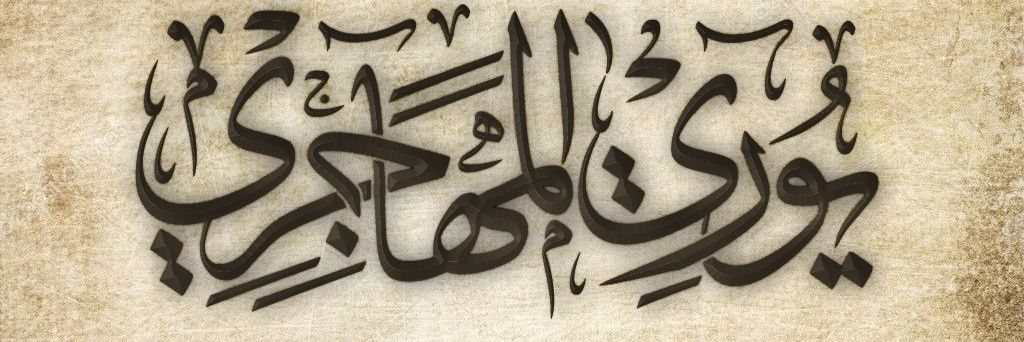 يُورِي المهَاجِرِي